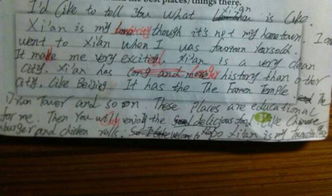 the best places) things there.
I'd like to tell you what Xi'an is like.
Xi'an is my though it's not my hometown. I
went to Xi'an when I was
It made me very excited. Xi'an is a very clean
city. Xi'an has long and more history than other
city. Like Beijing. It has the The Famen Temple The
Drum Tower and so on These places are educational
for me. Then you will enjoy the delicious food like Chinese
burger and chicken rolls. So Xi'an is my favorite